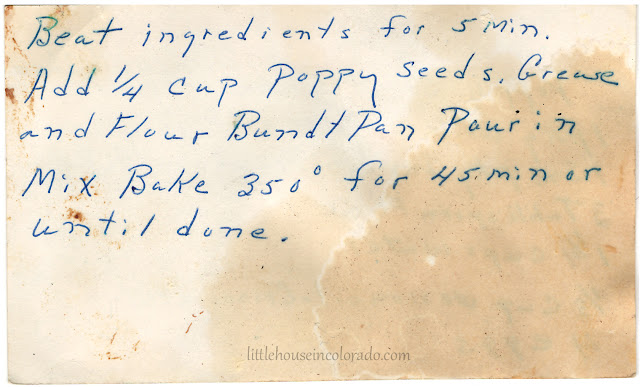 Beat ingredients for 5 Min.
Add 1/4 cup Poppy seeds. Grease
and Flour Bundt Pan Pour in
Mix Bake 350° for 45 min or
until done.
littlehouseincolorado.com